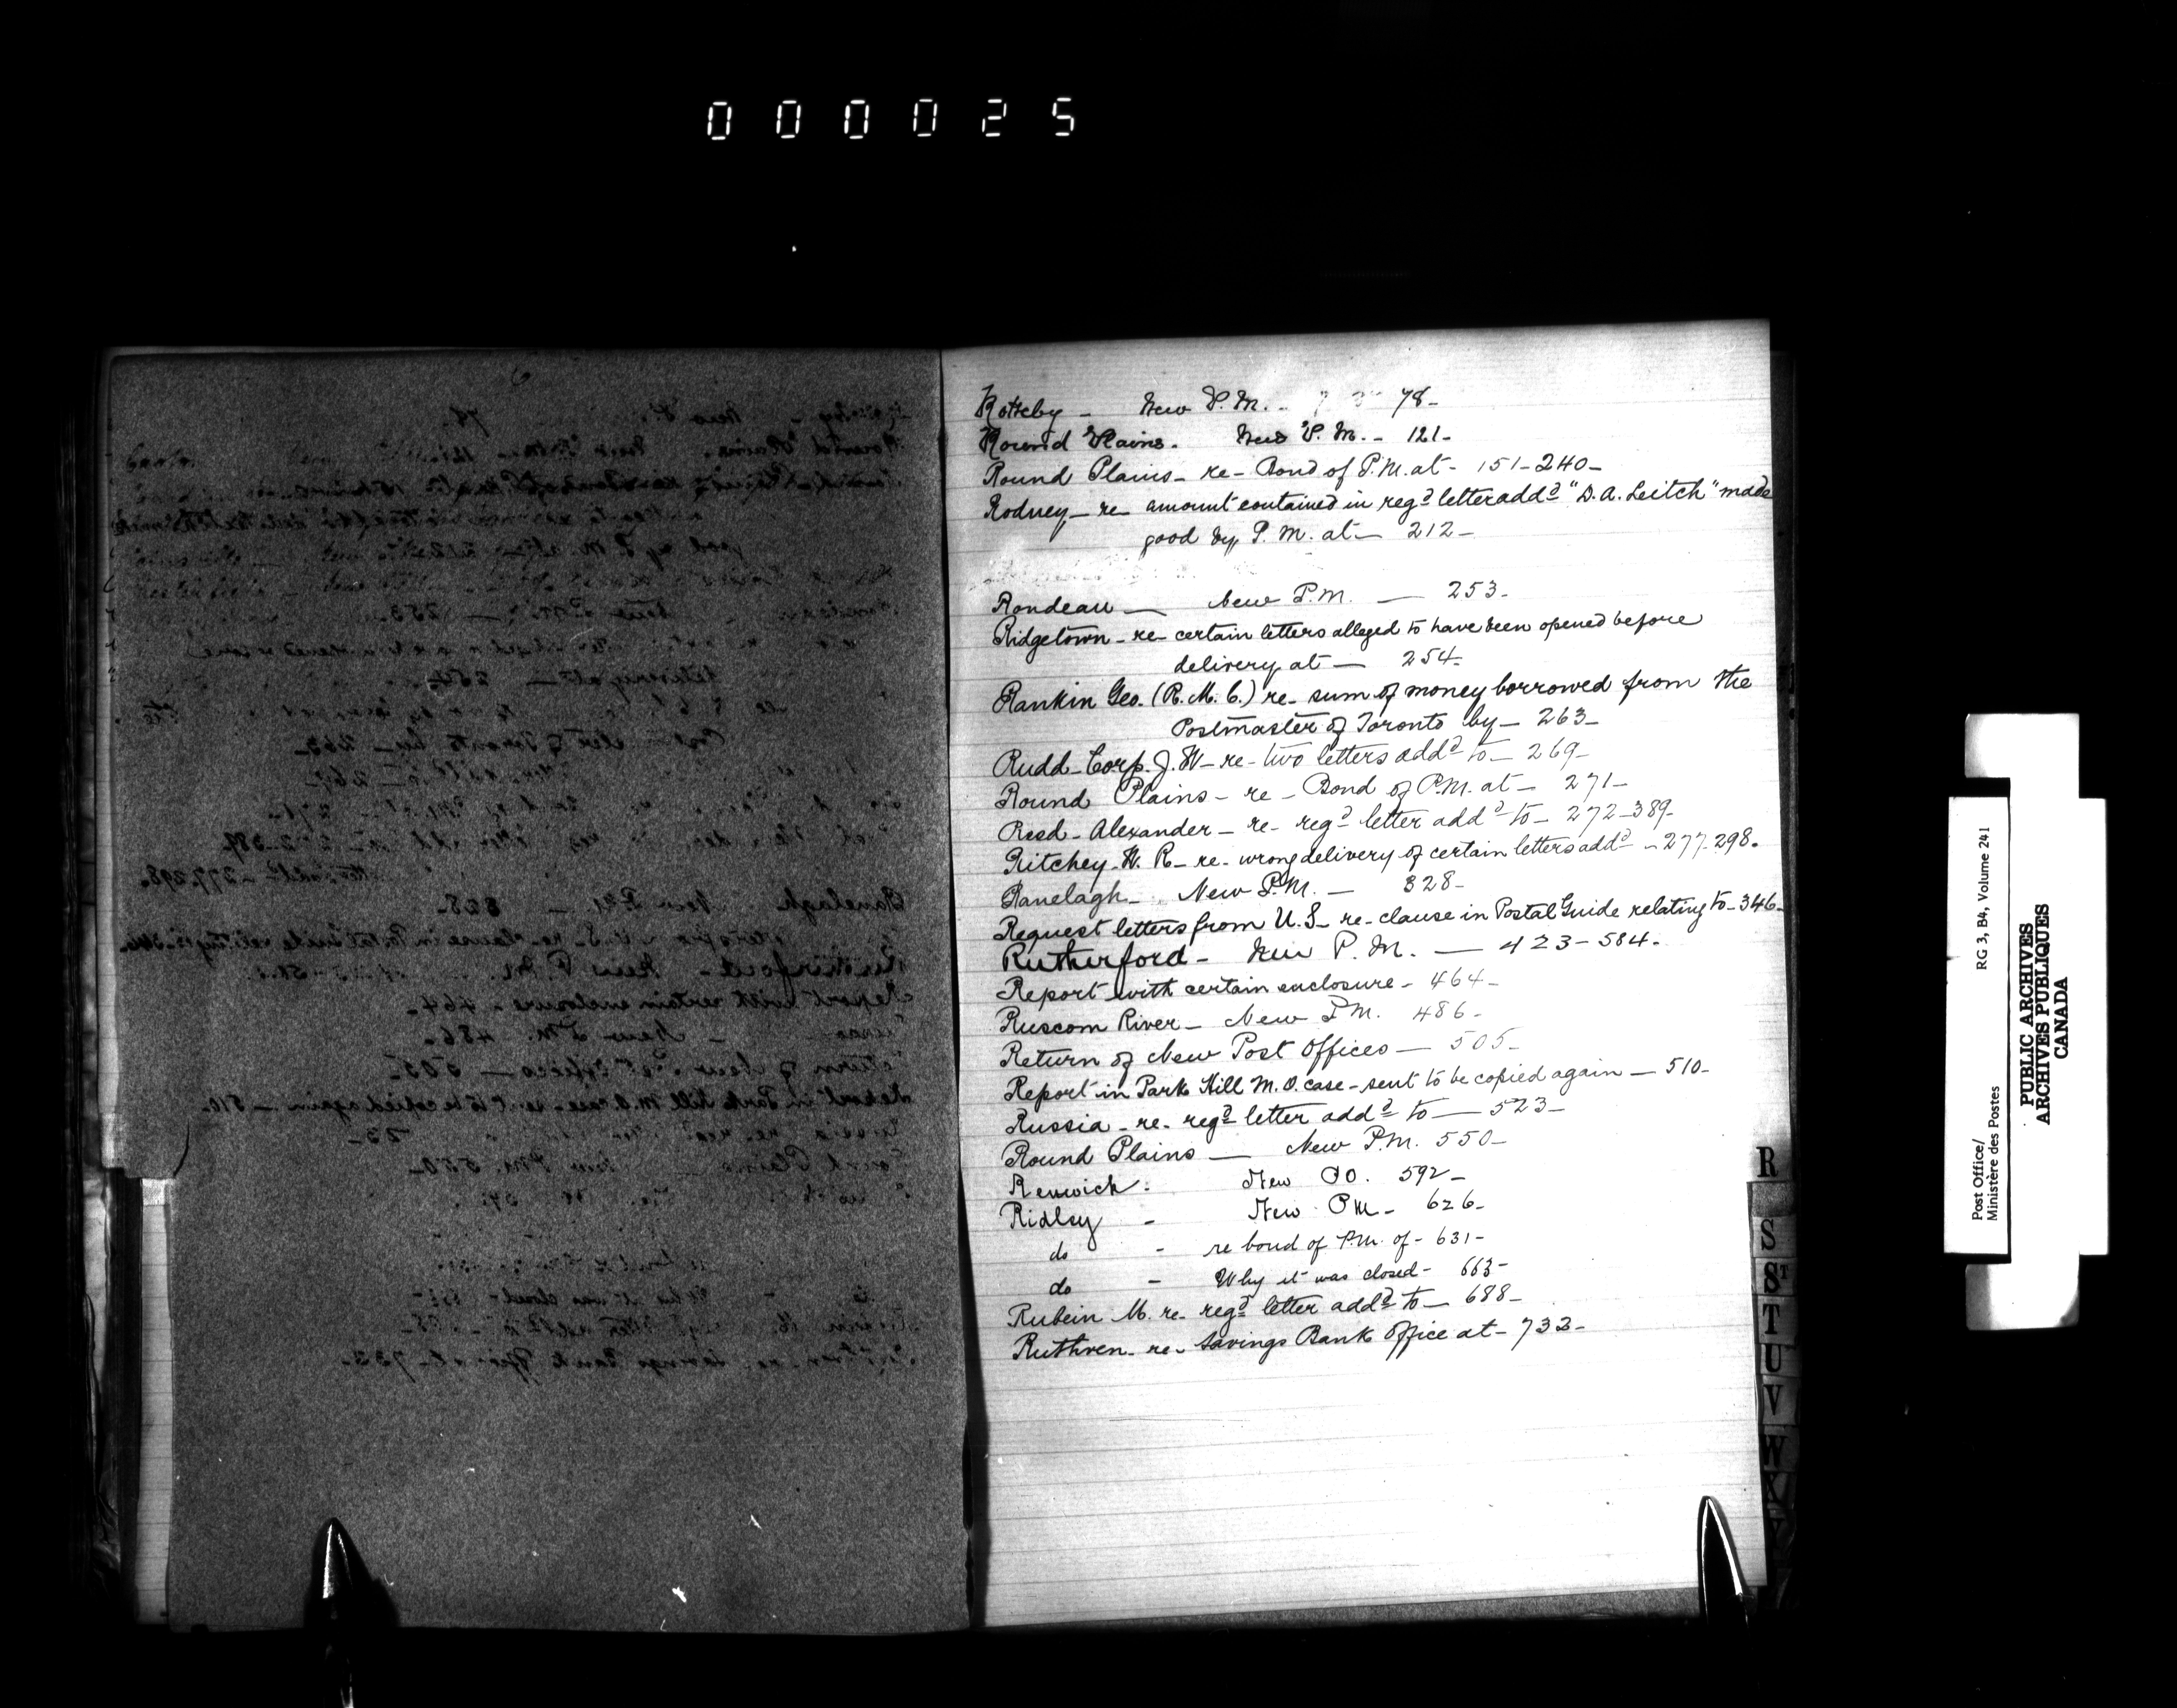 000025
Rotheby - New P.M. - 78-
Round Plains. New P.M. - 121-
Round Plains - re - Bond of P.M. at - 151-240-
Rodney - re amount contained in regd letter addd "D.A. Leitch" made
good by P.M. at - 212-
Rondeau - New P.M. - 253-
Ridgetown - re - certain letters alleged to have been opened before
delivery at - 254-
Rankin Geo. (R.M.C.) re - sum of money borrowed from the
Postmaster of Toronto by - 263-
Rudd - Corp. J. W - re - two letters addd to - 269-
Round Plains - re - Bond of P.M. at - 271-
Read - Alexander - re - regd letter addd to - 272-389-
Ritchey - W. R - re - wrong delivery of certain letters addd - 277-298.
Ranelagh - New P.M. - 328-
Request letters from U.S - re - clause in Postal Guide relating to - 346-
Rutherford - New P.M. - 423-584-
Report with certain enclosure - 464-
Ruscom River - New P.M. 486-
Return of New Post Offices - 505-
Report in Park Hill M.O. case - sent to be copied again - 510-
Russia - re - regd letter addd to - 523-
Round Plains - New P.M. 550-
Renwick: New PO. 592-
Ridley - New PM - 626-
do - re bond of P.M. of - 631-
do - Why it was closed - 663-
Rubein M. re - regd letter addd to - 688-
Ruthven - re - Savings Bank Office at - 733-
R
S
ST
T
U
V
W
X
Y
Post Office/
Ministère des Postes
RG 3, B4, Volume 241
PUBLIC ARCHIVES
ARCHIVES PUBLIQUES
CANADA